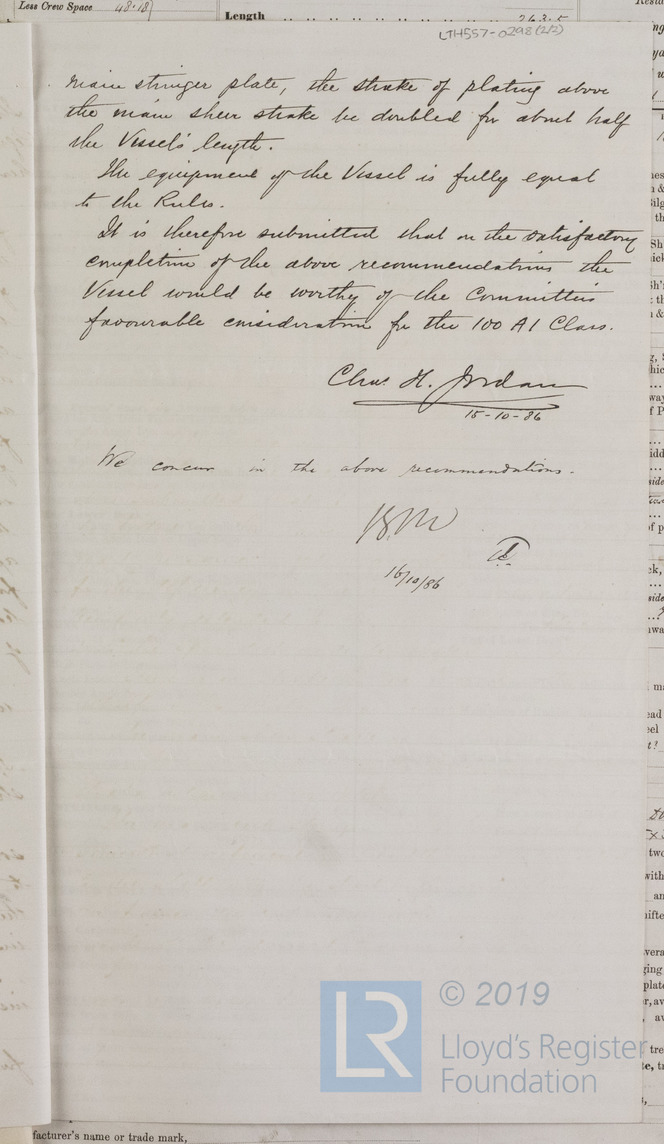 Less Crew Space 48.18
Length
LTH557-0298(2/2)
main stringer plate, the strake of plating above
the main sheer strake be doubled for about half
the Vessel's length.
The equipment of the Vessel is fully equal
to the Rules.
It is therefore submitted that on the satisfactory
completion of the above recommendations the
Vessel would be worthy of the Committees
favourable consideration for the 100 A1 Class.
Chas. H. Jordan
15-10-86
We concur in the above recommendations.
16/10/86
LR
© 2019
Lloyd's Register
Foundation
facturer's name or trade mark,